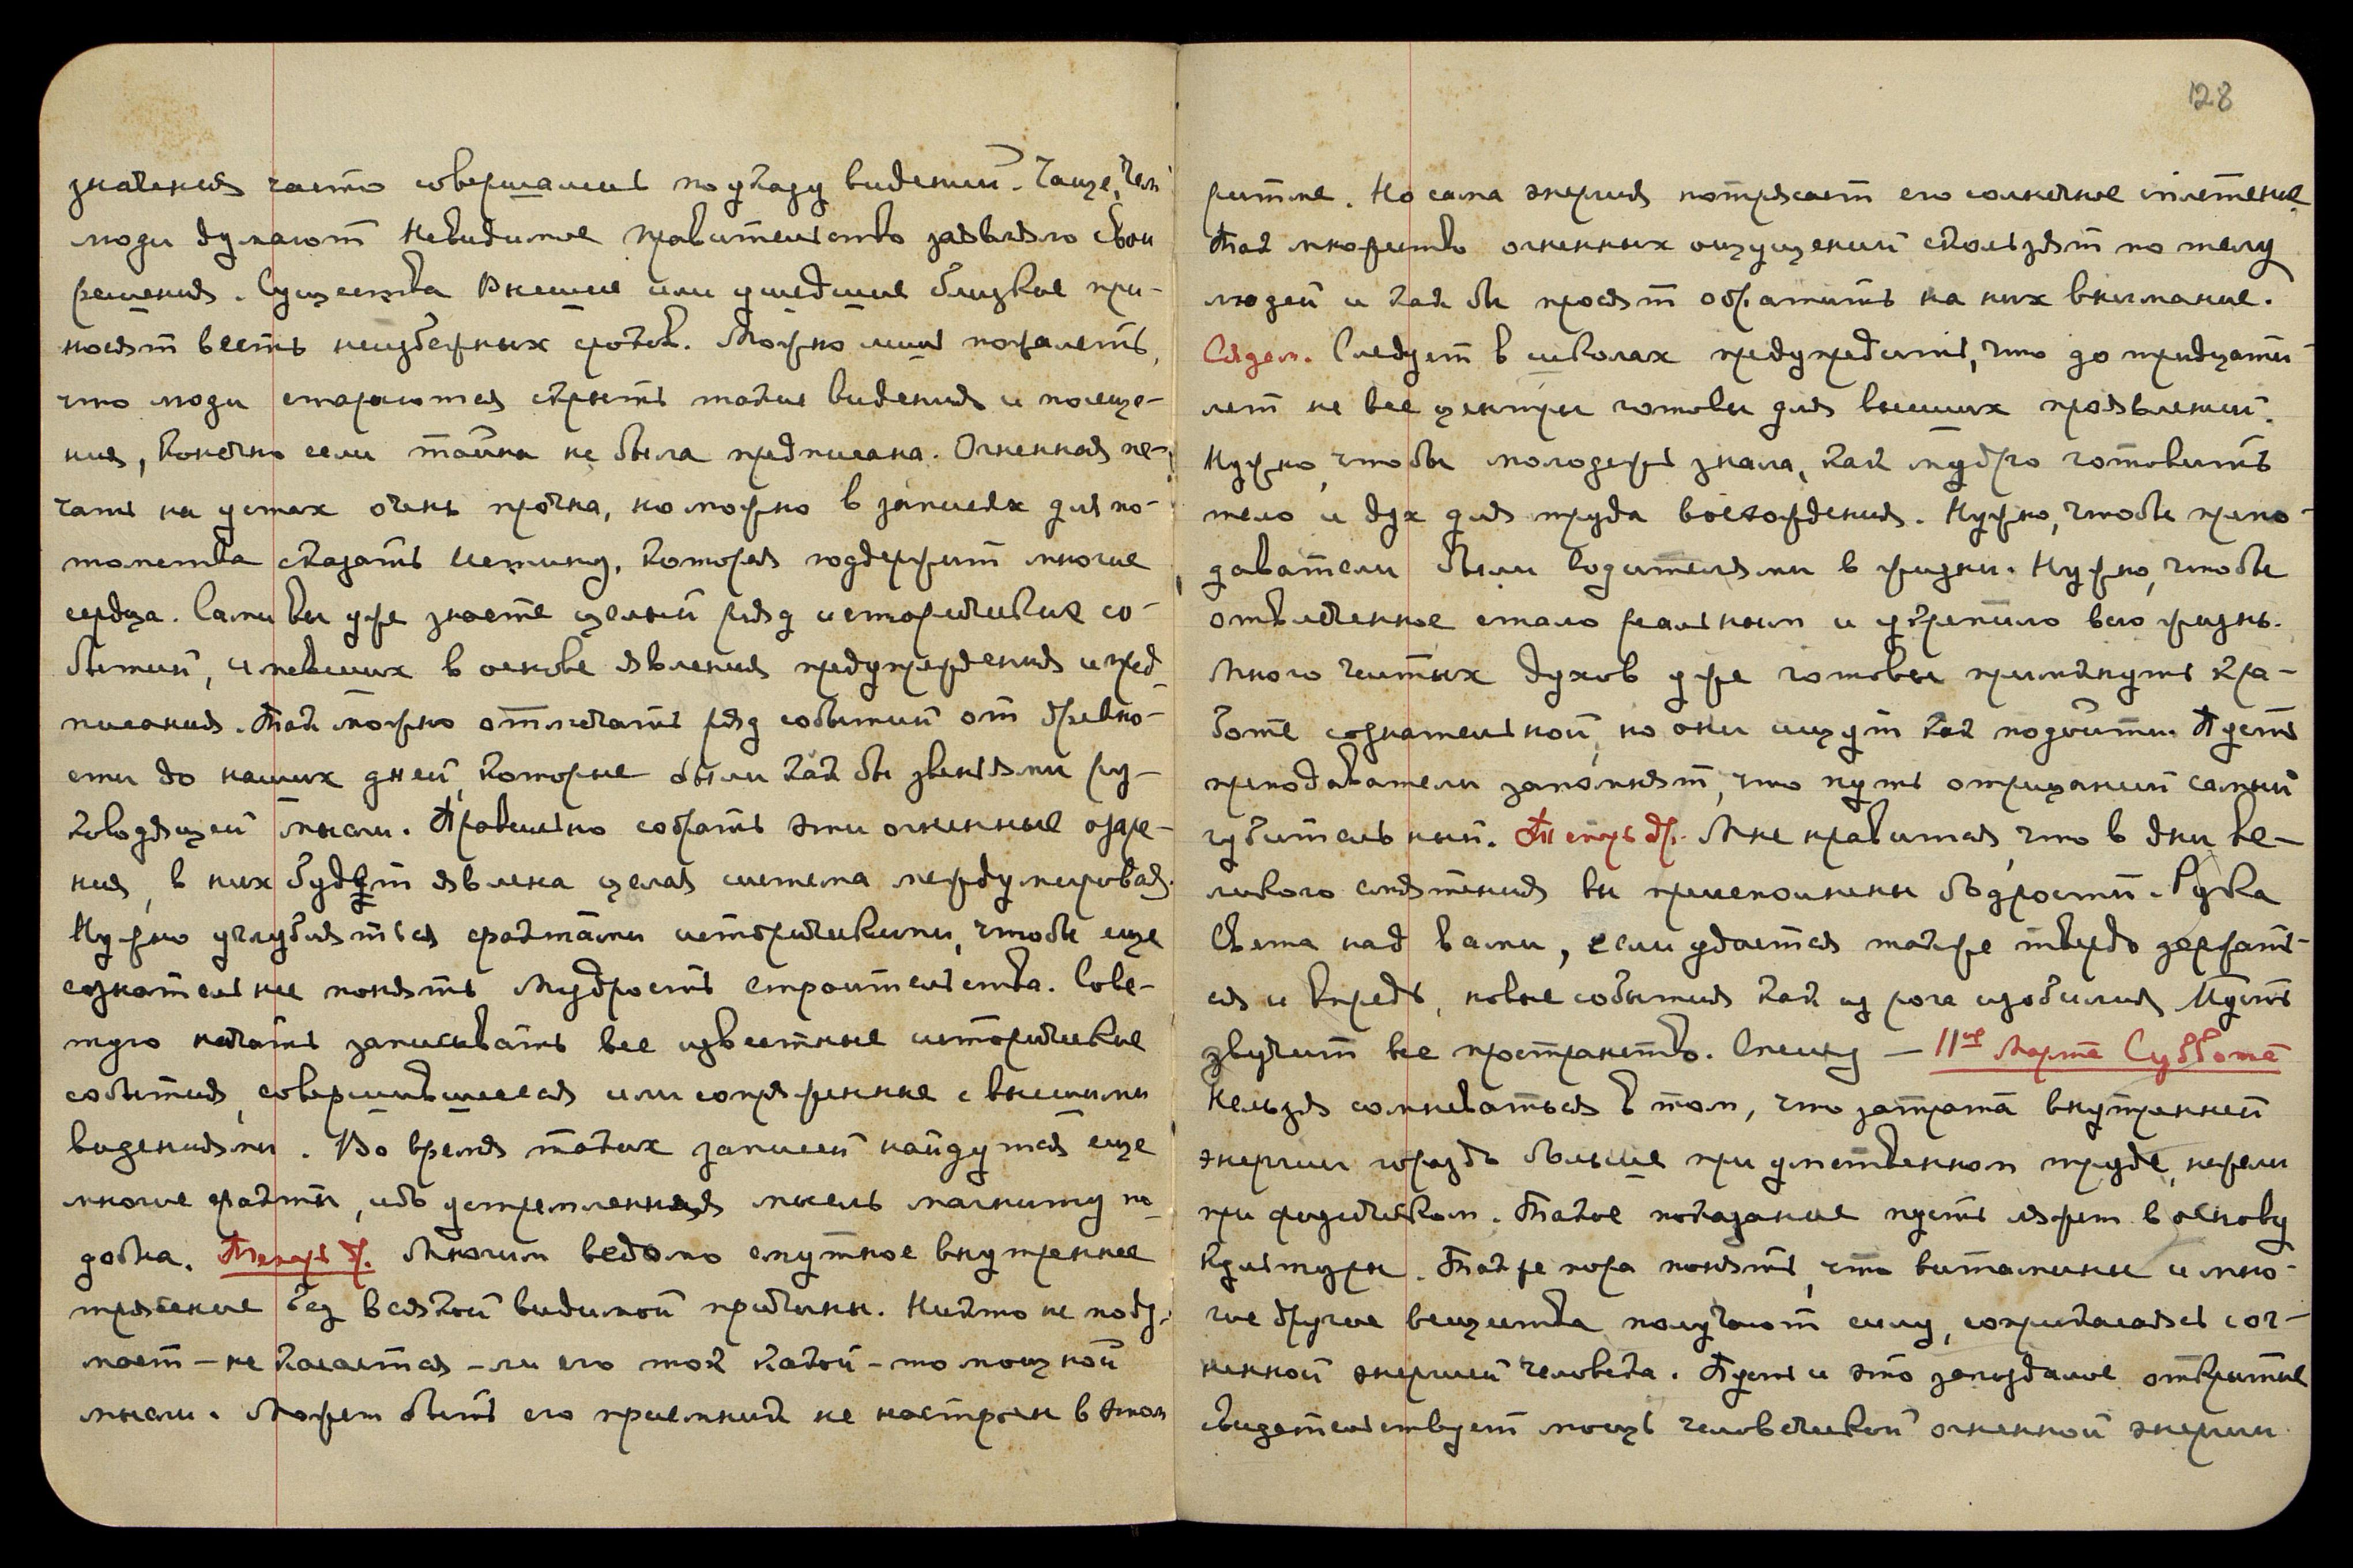 значения часто совершались по указу видений. Чаще, чем
люди думают Невидимое Правительство заявляло свои
решения. Существа Высшие или ушедшие близкие при-
носят весть неизбежных сроков. Можно лишь пожалеть,
что люди стараются скрыть такие видения и посеще-
ния, конечно если тайна не была предписана. Огненная пе-
чать на устах очень прочна, но можно в записях для по-
томства сказать истину, которая поддержит многие
сердца. Сами вы уже знаете целый ряд исторических со-
бытий, имевших в основе явления предупреждения и пред-
писания. Так можно отмечать ряд событий от древно-
сти до наших дней, которые были как бы звеньями ру-
ководящей мысли. Правильно собрать эти огненные озаре-
ния, в них будет явлена целая система междумировая.
Нужно углубляться фактами историческими, чтобы еще
сознательнее понять Мудрость строительства. Сове-
тую начать записывать все известные исторические
события, совершившиеся или сопряженные с высшими
видениями. Во время таких записей найдутся еще
многие факты, ибо устремленная мысль магниту по-
добна. Теперь др. Многим ведомо смутное внутреннее
трясение без всякой видимой причины. Никто не поду-
мает – не касается-ли его ток какой-то мощной
мысли. Может быть его приемник не настроен в этом
128
ритме. Но сама энергия потрясает его солнечное сплетение.
Так множество огненных ощущений скользят по телу
людей и как бы просят обратить на них внимание.
Сядем. Следует в школах предупредить, что до тридцати
лет не все центры готовы для высших проявлений.
Нужно, чтобы молодежь знала, как мудро готовить
тело и дух для труда восхождения. Нужно, чтобы препо-
даватели были водителями в жизни. Нужно, чтобы
отвлеченное стало реальным и укрепило всю жизнь.
Много чистых духов уже готовы примкнуть к ра-
боте сознательной, но они ищут как подойти. Пусть
преподаватели запомнят, что путь отрицаний самый
губительный. Теперь др. Мне нравится, что в дни ве-
ликого смятения вы преисполнены бодрости. Рука
Света над вами, если удастся также твердо держать-
ся и впредь, новые события как из рога изобилия. Пусть
звучит все пространство. Спешу — 11ое Марта Суббота
Нельзя сомневаться в том, что затрата внутренней
энергии гораздо больше при умственном труде, нежели
при физическом. Такое показание пусть ляжет в основу
культуры. Также пора понять, что витамины и мно-
гие другие вещества получают силу, соприкасаясь с ог-
ненной энергией человека. Пусть и это запоздалое открытие
свидетельствует мощь человеческой огненной энергии